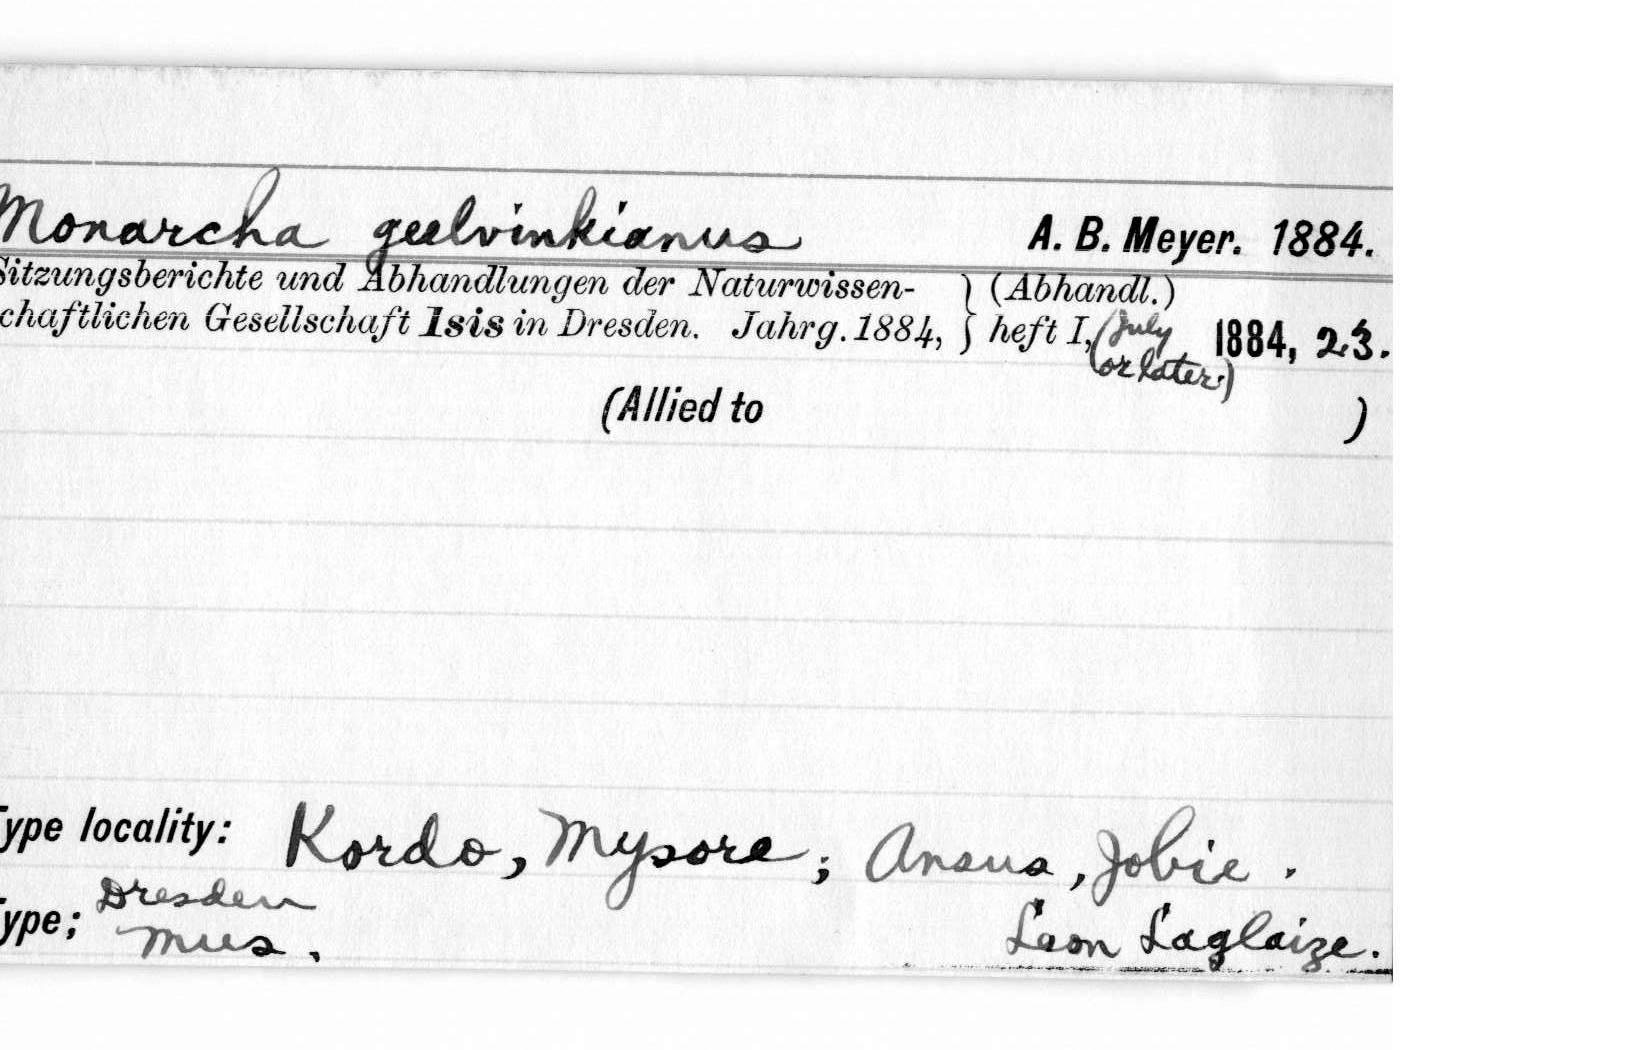 Monarcha geelvinkianus A. B. Meyer. 1884.
Sitzungsberichte und Abhandlungen der Naturwissen- } (Abhandl.)
chaftlichen Gesellschaft Isis in Dresden. Jahrg. 1884, } heft I, (July 1884, 23.
or later.)
(Allied to )
Type locality: Kordo, Mysore; Ansus, Jobie.
Dresden
Type; Mus. Léon Laglaize.